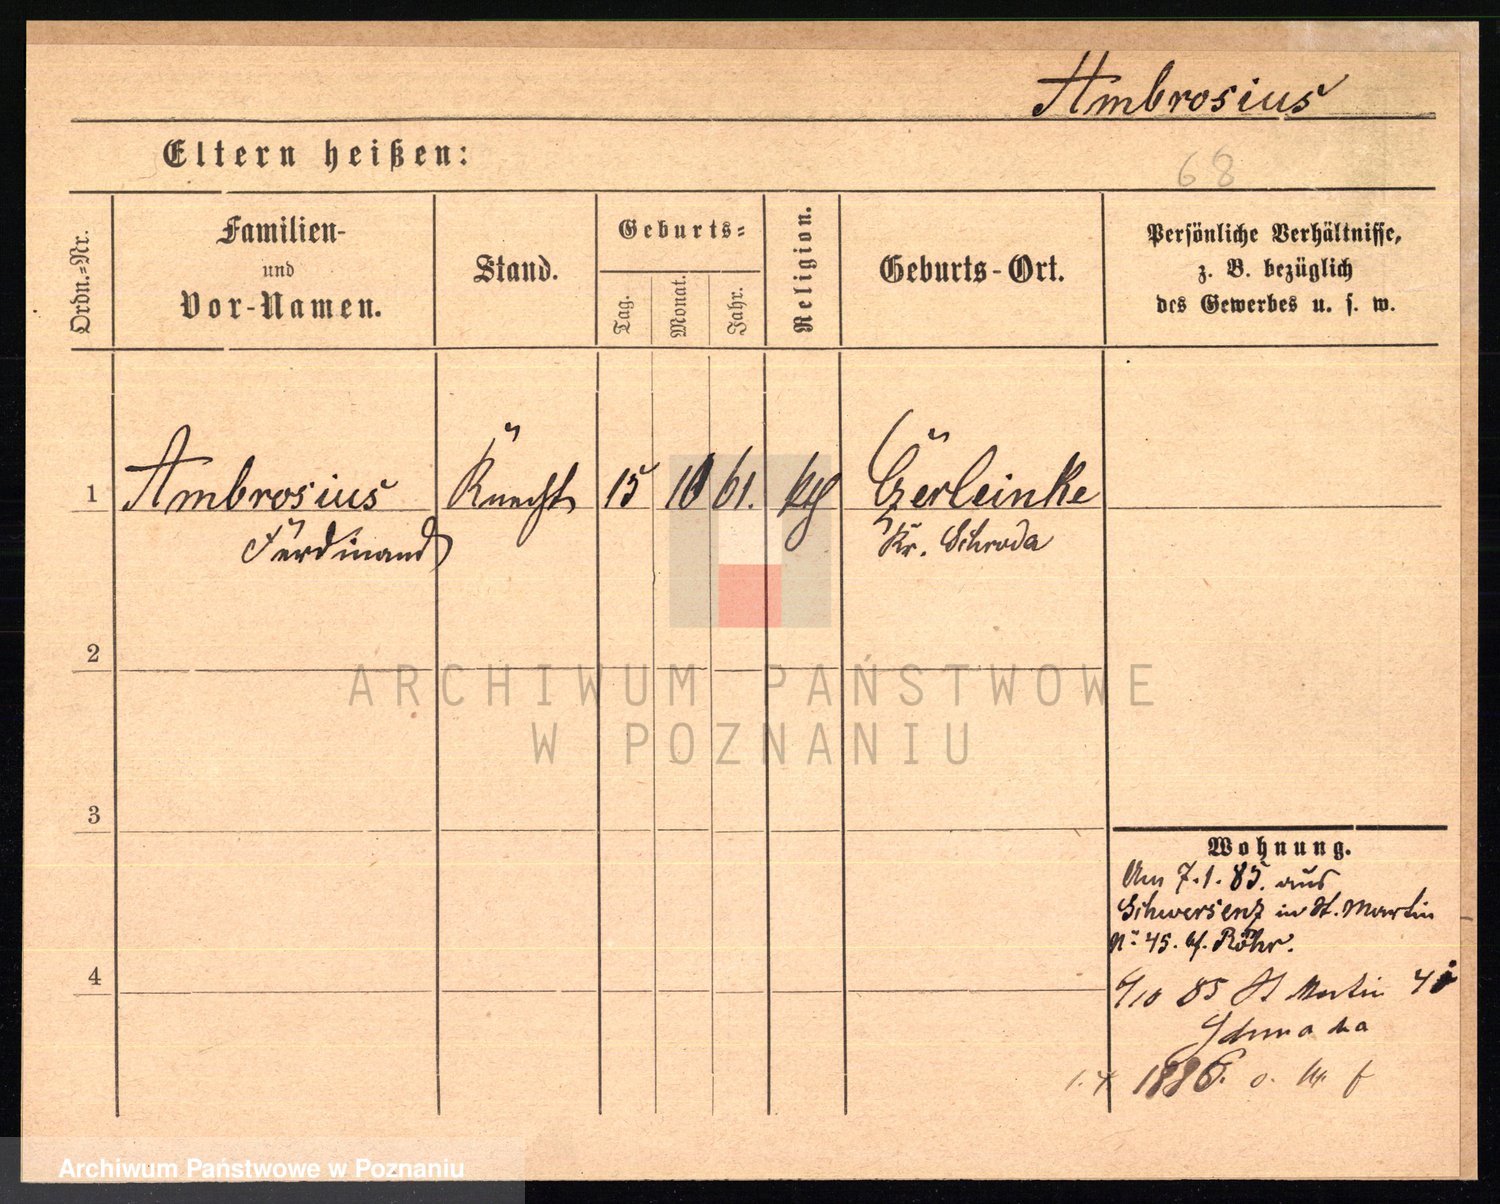 Ambrosius
Eltern heißen:
68
Ordn.=Nr.
Familien-
und
Vor-Namen.
Stand.
Geburts=
Tag.
Monat.
Jahr.
Religion.
Geburts-Ort.
Persönliche Verhältnisse,
z. B. bezüglich
des Gewerbes u. s. w.
1 Ambrosius Knecht 15 10 61. kth
Ferdinand Kr. Schroda
2
3
4
Wohnung.
Am 7.1.85. aus
Schwersenz in St. Martin
No 45. bf. Röhr.
6/10 85 St Martin
1886. o.
ARCHIWUM PAŃSTWOWE
W POZNANIU
Archiwum Państwowe w Poznaniu